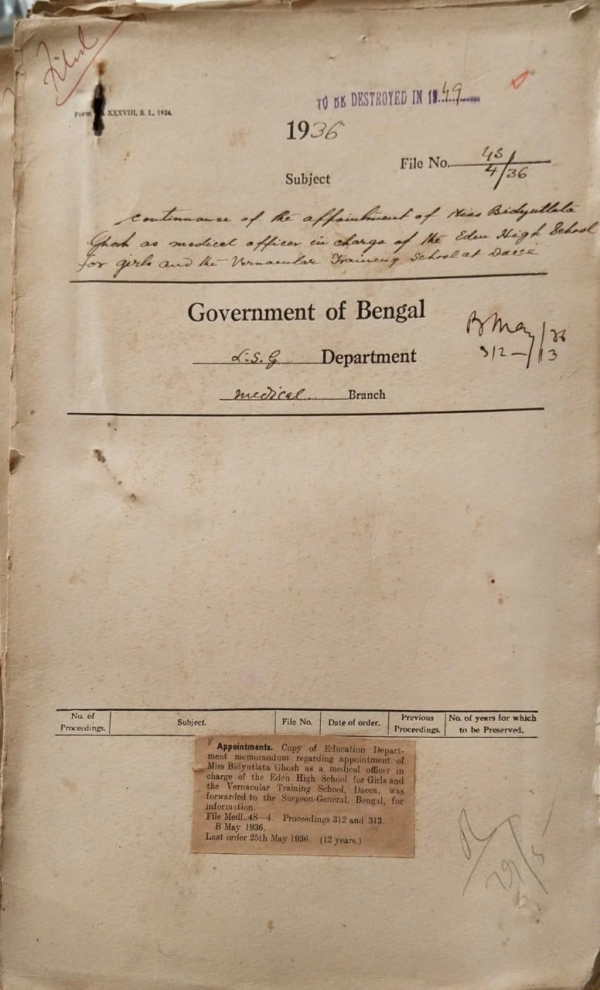 Filed
XXXVIII, S. I., 1924.
TO BE DESTROYED IN 1949
1936
File No. 4S/4/36
Subject
Continuance of the appointment of Miss Bidyutlata
Ghosh as medical officer in charge of the Eden High School
for girls and the Vernacular Training School at Dacca
Government of Bengal
B May/36
312-/13
L.S.G Department
medical Branch
No. of Proceedings. Subject. File No. Date of order. Previous Proceedings. No. of years for which to be Preserved.
Appointments. Copy of Education Depart-
ment memorandum regarding appointment of
Miss Bidyutlata Ghosh as a medical officer in
charge of the Eden High School for Girls and
the Vernacular Training School, Dacca, was
forwarded to the Surgeon-General, Bengal, for
information.
File Medl. 4S—4. Proceedings 312 and 313.
B May 1936.
Last order 25th May 1936. (12 years.)